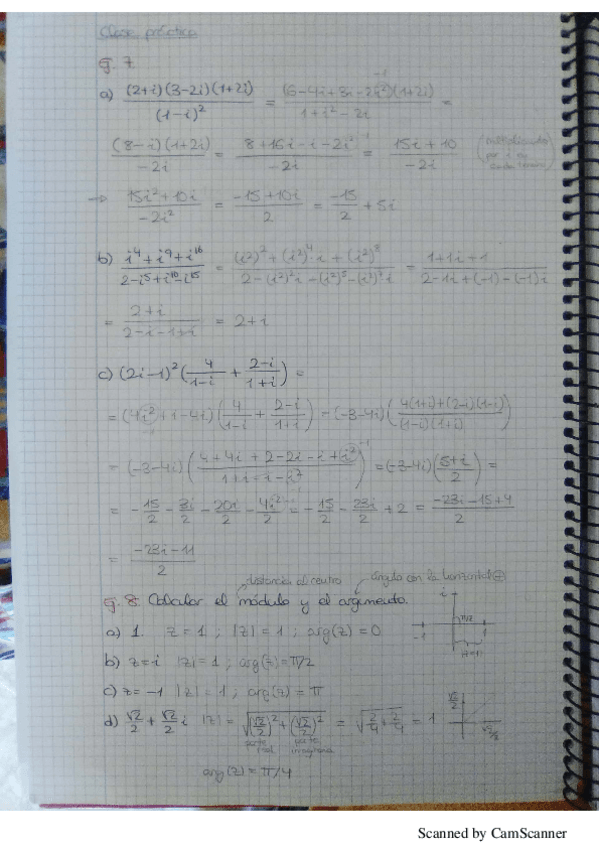 Clase práctica
Ej. 7
a) (2+i)(3-2i)(1+2i) / (1-i)² = (6-4i+3i-2i²)(1+2i) / 1+i²-2i =
(8-i)(1+2i) / -2i = 8+16i-i-2i² / -2i = 15i+10 / -2i (multiplicando por i
→ 15i²+10i / -2i² = -15+10i / 2 = -15/2 + 5i
b) i⁴+i⁹+i¹⁶ / 2-i⁵+i¹⁰-i¹⁵ = (i²)²+(i²)⁴·i+(i²)⁸ / 2-(i²)²i-(i²)⁵-(i²)⁷i = 1+1i+1 / 2-1i+(-1)-(-1)i
= 2+i / 2-i-1+i = 2+i
c) (2i-1)² (4/1-i + 2-i/1+i) =
= (4i²+1-4i) (4/1-i + 2-i/1+i) = (-3-4i) (4(1+i)+(2-i)(1-i) / (1-i)(1+i))
= (-3-4i) (4+4i+2-2i-i+i² / 1+i-i-i²) = (-3-4i) (5+i / 2) =
= -15/2 - 3i/2 - 20i/2 - 4i²/2 = -15/2 - 23i/2 + 2 = -23i-15+4 / 2
= -23i-11 / 2
distancia al centro ángulo con la horizontal ⊕
Ej. 8 Calcular el módulo y el argumento.
a) 1. z=1 ; |z|=1 ; arg(z)=0
b) z=i |z|=1 ; arg(z)=π/2
c) z=-1 |z|=1 ; arg(z)=π
d) √2/2 + √2/2 i |z| = √((√2/2)²+(√2/2)²) = √(2/4+2/4) = 1
parte real parte imaginaria
arg(z)=π/4
Scanned by CamScanner